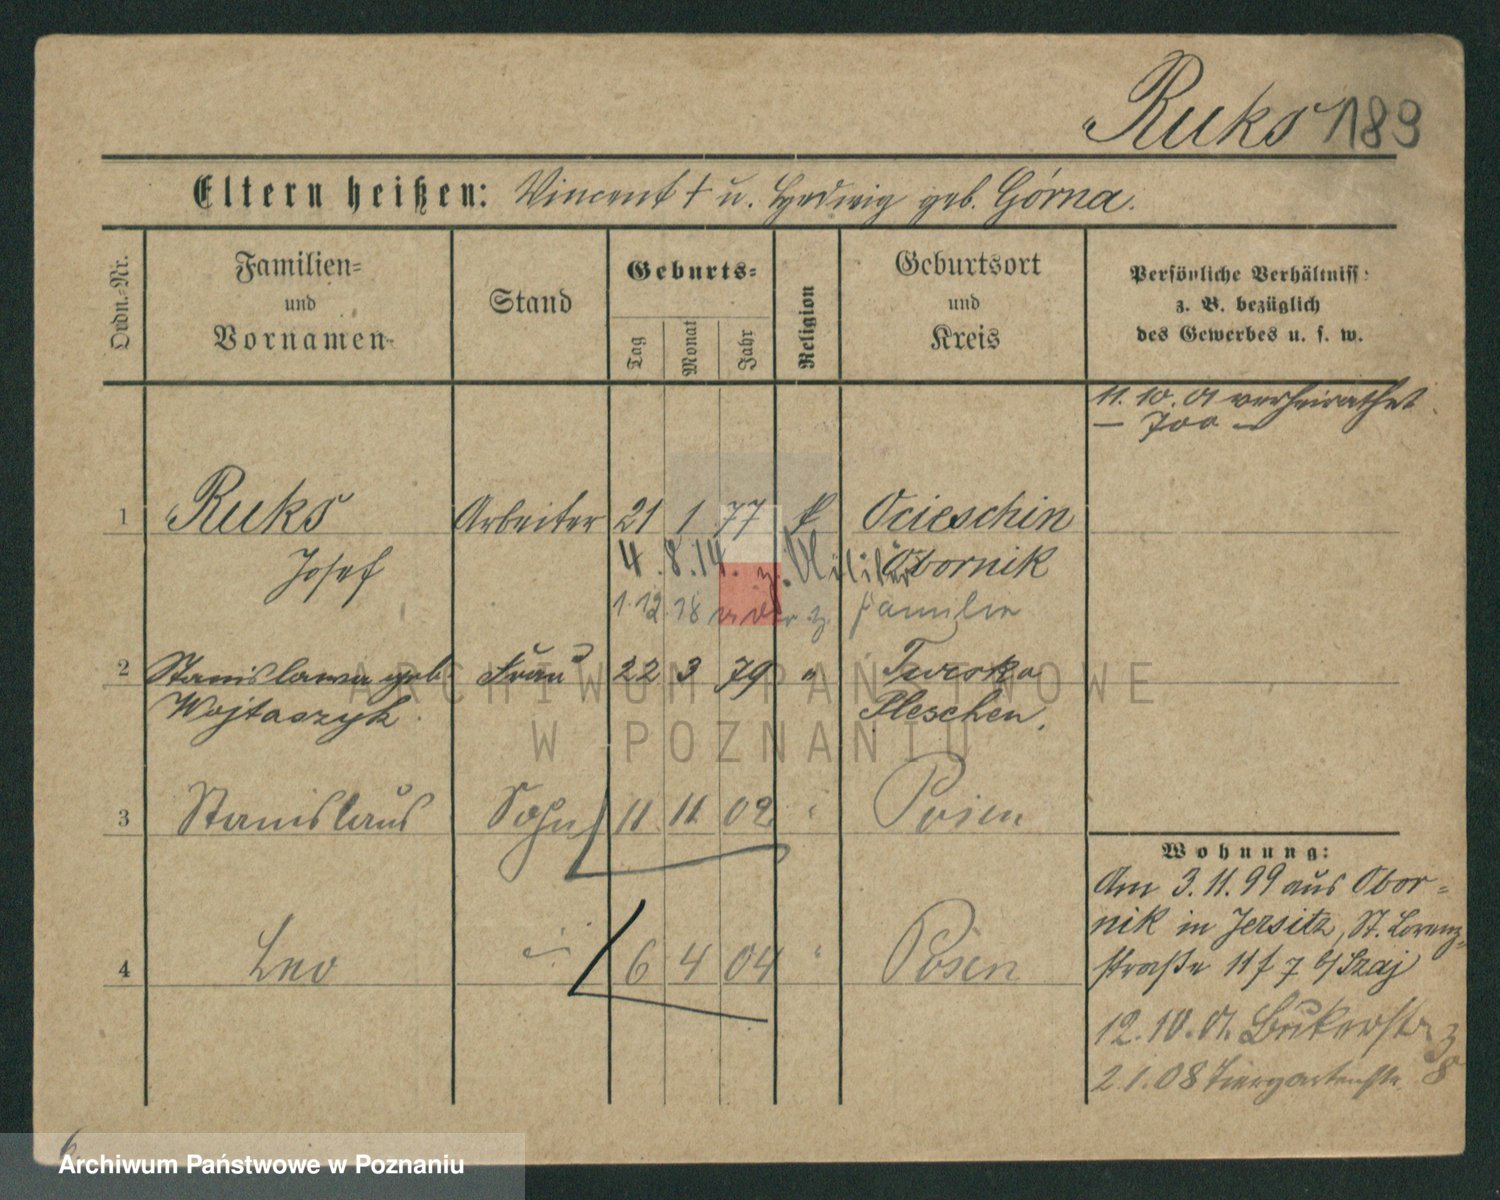 Ruks 189
Eltern heißen: Vincent † u. Hedwig geb. Górna.
Ordn.-Nr.
Familien-
und
Vornamen
Stand
Geburts-
Tag
Monat
Jahr
Religion
Geburtsort
und
Kreis
Persönliche Verhältniss:
z. B. bezüglich
des Gewerbes u. s. w.
11. 10. 01 verheirathet
— 700 —
1 Ruks Arbeiter 21 1 77 k. Ocieschin
Josef Obornik
4.8.14. z. Militär
1.12.18 wieder z. Familie
2 Stanislawa geb. Frau 22 3 79 " Twroka
Wojtaszyk. Pleschen.
ARCHIWUM PAŃSTWOWE
W POZNANIU
3 Stanislaus Sohn 11 11 02 " Posen
4 Leo " 6 4 04 " Posen
Wohnung:
Am 3.11.99 aus Obor-
nik in Jersitz, St. Lorenz-
straße 11 f 7 b/ Szaj
12.10.01. Bukerstr 3
2.1.08 Tiergartenstr. 8
6
Archiwum Państwowe w Poznaniu